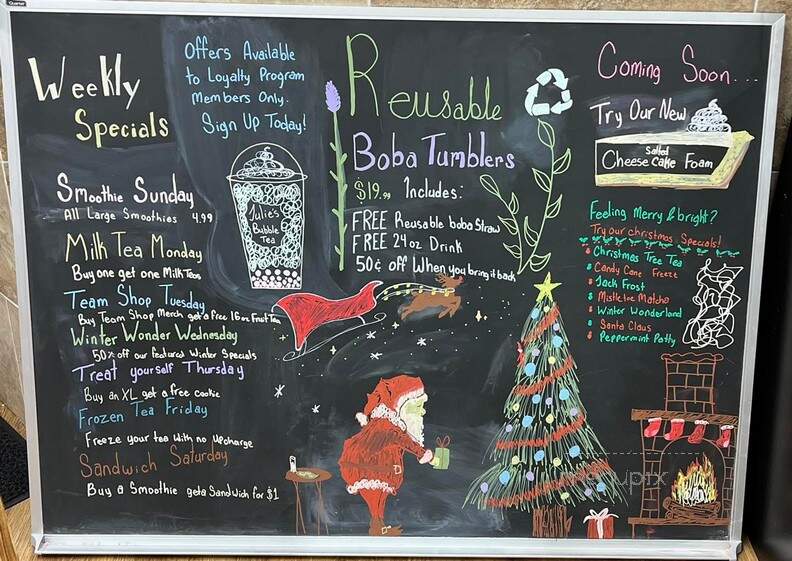 Weekly
Specials
Offers Available
to Loyalty Program
Members Only.
Sign Up Today!
Smoothie Sunday
All Large Smoothies 4.99
Milk Tea Monday
Buy one get one Milk Teas
Team Shop Tuesday
Buy Team Shop Merch get a free 16oz Fruit Tea
Winter Wonder Wednesday
50% off our featured Winter Specials
Treat yourself Thursday
Buy an XL get a free cookie
Frozen Tea Friday
Freeze your tea with no upcharge
Sandwich Saturday
Buy a Smoothie get a Sandwich for $1
Julie's
Bubble
Tea
Reusable
Boba Tumblers
$19.99 Includes:
FREE Reusable boba Straw
FREE 24oz Drink
50¢ off When you bring it back
Coming Soon...
Try Our New
Salted
Cheesecake Foam
Feeling Merry & bright?
Try our christmas Specials!
Christmas Tree Tea
Candy Cane Freeze
Jack Frost
Mistletoe Matcha
Winter Wonderland
Santa Claus
Peppermint Patty
menupix